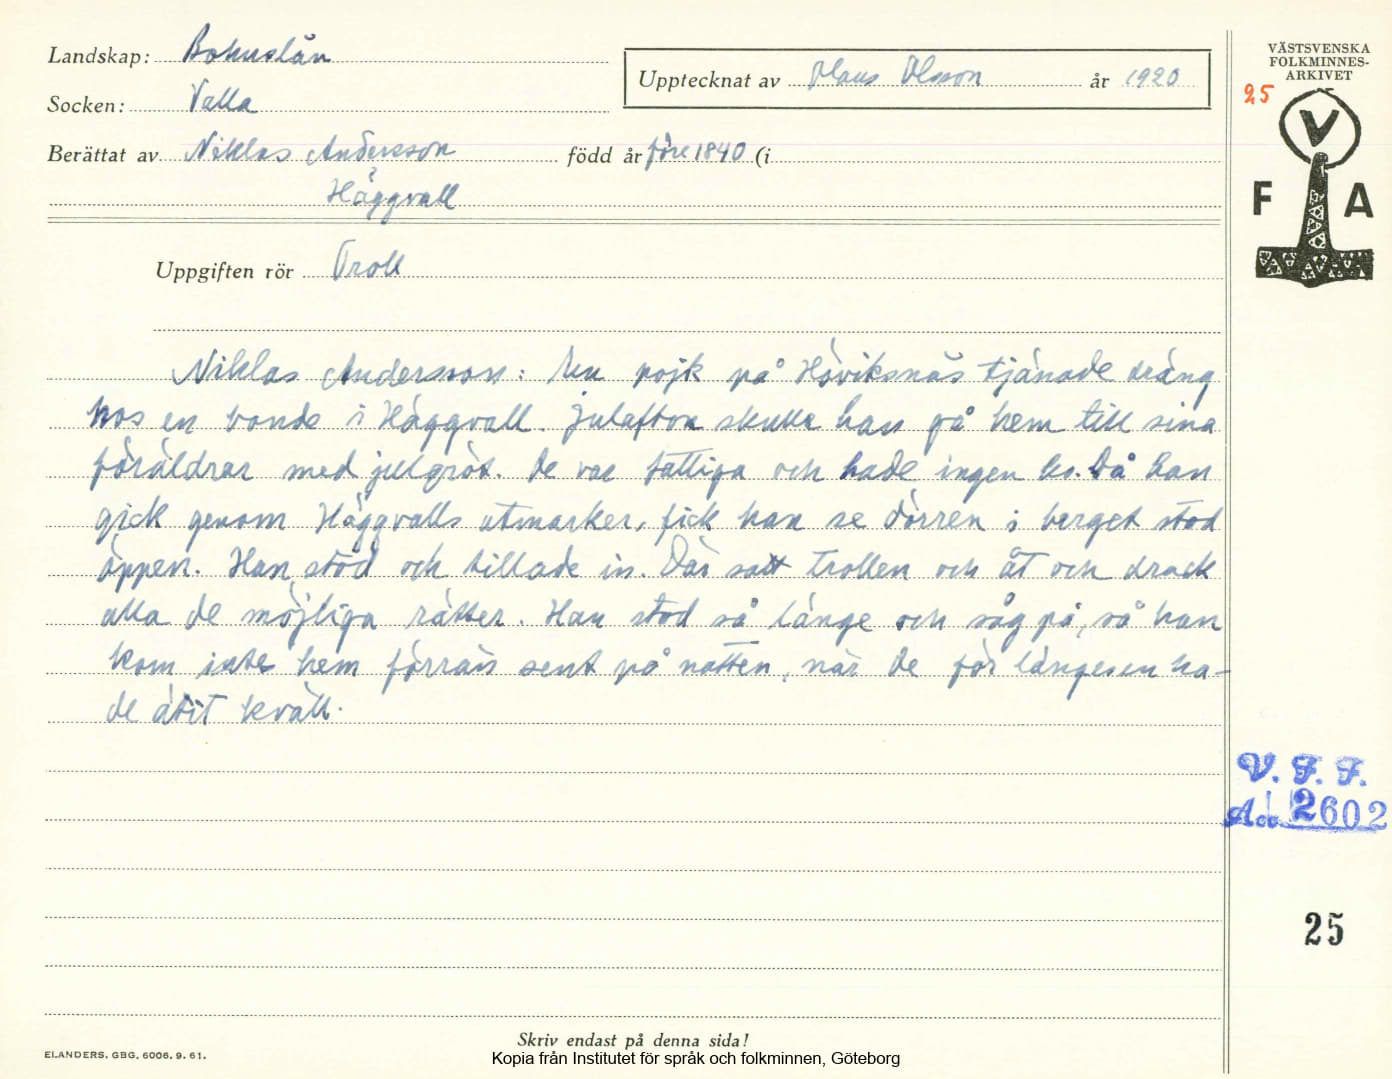 Landskap: Bohuslän
Socken: Valla
Berättat av Niklas Andersson född år före 1840 (i
Häggvall
Upptecknat av Olsson år 1920
Uppgiften rör Troll
Niklas Andersson: En pojk på Höviksnäs tjänade dräng
hos en bonde i Häggvall. Julafton skulle han gå hem till sina
föräldrar med julgröt. De var fattiga och hade ingen ko. Då han
gick genom Häggvalls utmarker, fick han se dörren i berget stod
öppen. Han stod och tittade in. Där satt trollen och åt och drack
alla de möjliga rätter. Han stod så länge och såg på, så han
kom inte hem förrän sent på natten, när de för längesen ha-
de ätit kväll.
VÄSTSVENSKA
FOLKMINNES-
ARKIVET
25
V
F A
V. F. F.
Acc. 2602
25
Skriv endast på denna sida!
ELANDERS, GBG, 6006. 9. 61.
Kopia från Institutet för språk och folkminnen, Göteborg